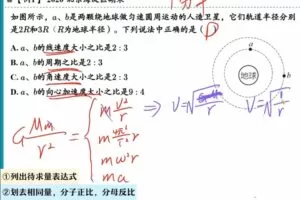 如图所示,a、b是两颗绕地球做匀速圆周运动的人造卫星,它们轨道半径分别
是2R和3R(R为地球半径)。下列说法中正确的是(D)
A. a、b的线速度大小之比是2:3
B. a、b的周期之比是2:3
C. a、b的角速度大小之比是2:3
D. a、b的向心加速度大小之比是9:4
a
b
地球
G Mm/r² = { m v²/r
m 4π²/T² r
mω²r
ma
⇒ V=√(GM/r) ⇒ V=√(1/r)
①列出待求量表达式
②划去相同量,分子正比,分母反比